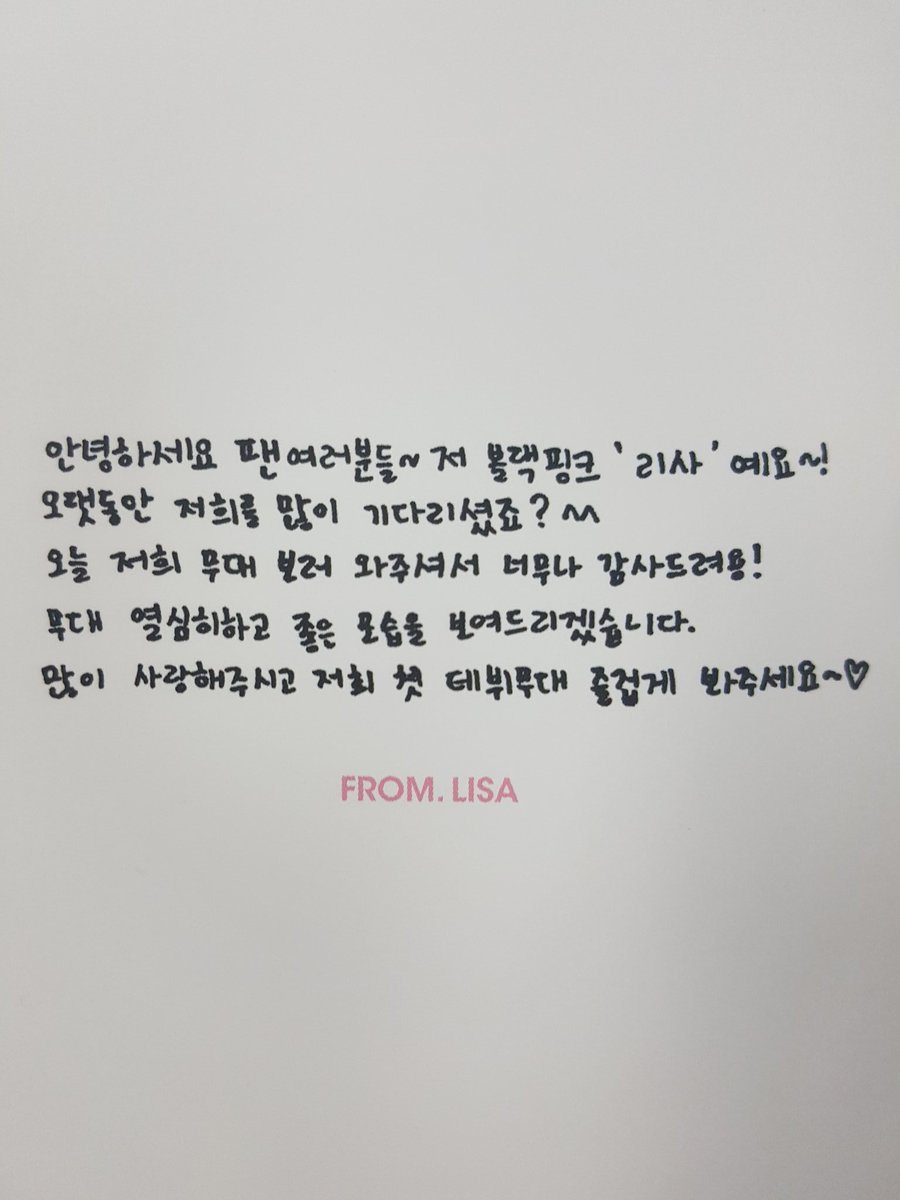 안녕하세요 팬여러분들~ 저 블랙핑크 '리사' 예요~!
오랫동안 저희를 많이 기다리셨죠? ^^
오늘 저희 무대 보러 와주셔서 너무나 감사드려용!
무대 열심히하고 좋은 모습을 보여드리겠습니다.
많이 사랑해주시고 저희 첫 데뷔무대 즐겁게 봐주세요~♡
FROM. LISA